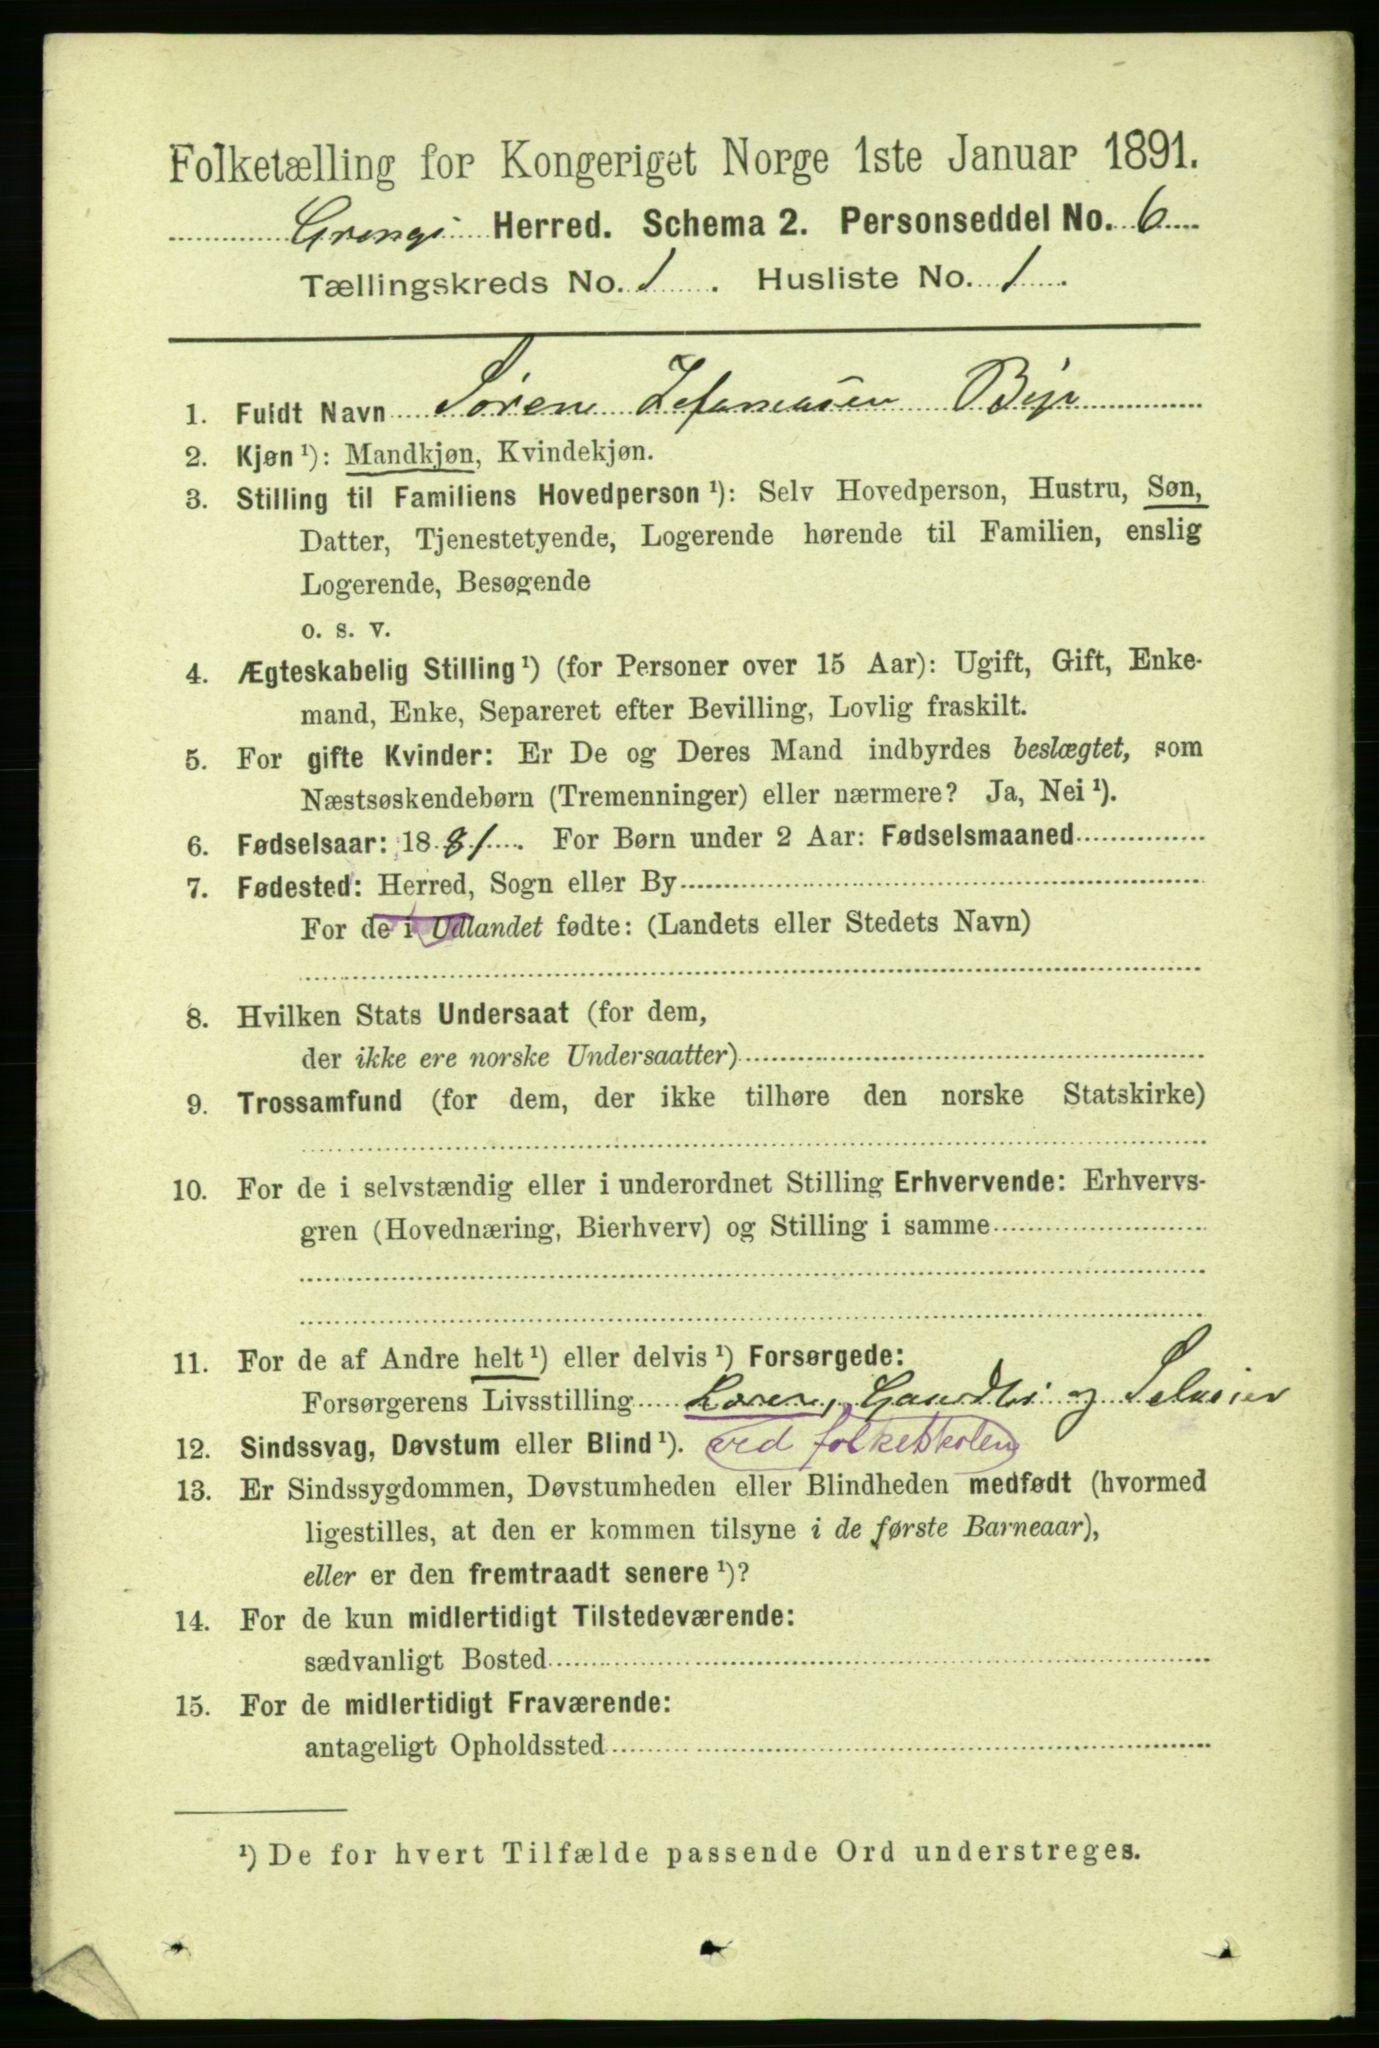 Folketælling for Kongeriget Norge 1ste Januar 1891.
Herred. Schema 2. Personseddel No. 6
Tællingskreds No. 1. Husliste No. 1.
1. Fuldt Navn Søren Bye
2. Kjøn ¹): Mandkjøn, Kvindekjøn.
3. Stilling til Familiens Hovedperson ¹): Selv Hovedperson, Hustru, Søn,
Datter, Tjenestetyende, Logerende hørende til Familien, enslig
Logerende, Besøgende
o. s. v.
4. Ægteskabelig Stilling ¹) (for Personer over 15 Aar): Ugift, Gift, Enke-
mand, Enke, Separeret efter Bevilling, Lovlig fraskilt.
5. For gifte Kvinder: Er De og Deres Mand indbyrdes beslægtet, som
Næstsøskendebørn (Tremenninger) eller nærmere? Ja, Nei ¹).
6. Fødselsaar: 1881. For Børn under 2 Aar: Fødselsmaaned
7. Fødested: Herred, Sogn eller By
For de i Udlandet fødte: (Landets eller Stedets Navn)
8. Hvilken Stats Undersaat (for dem,
der ikke ere norske Undersaatter)
9. Trossamfund (for dem, der ikke tilhøre den norske Statskirke)
10. For de i selvstændig eller i underordnet Stilling Erhvervende: Erhvervs-
gren (Hovednæring, Bierhverv) og Stilling i samme
11. For de af Andre helt ¹) eller delvis ¹) Forsørgede:
Forsørgerens Livsstilling Lærer, og
12. Sindssvag, Døvstum eller Blind ¹). ved folkeskolen
13. Er Sindssygdommen, Døvstumheden eller Blindheden medfødt (hvormed
ligestilles, at den er kommen tilsyne i de første Barneaar),
eller er den fremtraadt senere ¹)?
14. For de kun midlertidigt Tilstedeværende:
sædvanligt Bosted
15. For de midlertidigt Fraværende:
antageligt Opholdssted
¹) De for hvert Tilfælde passende Ord understreges.